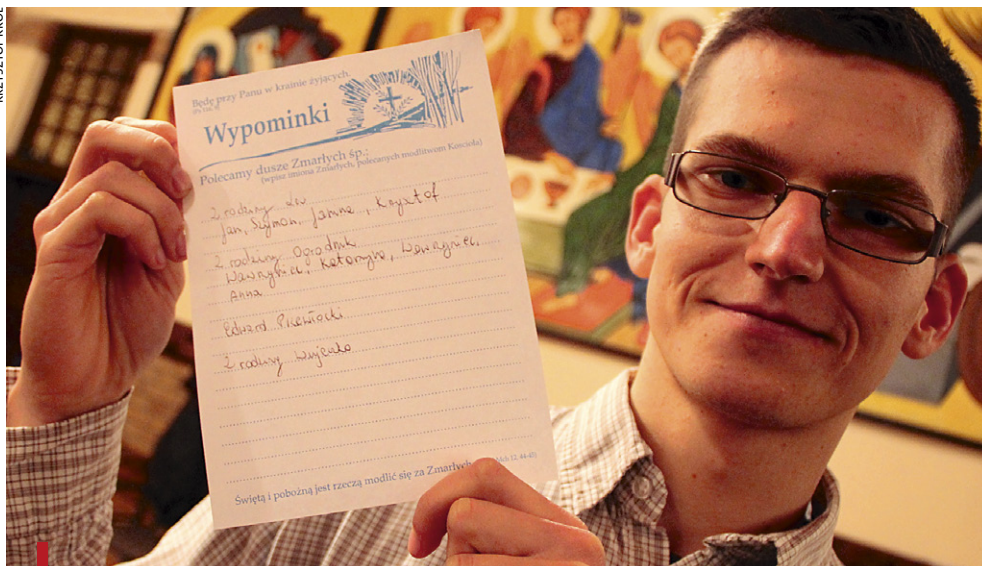 KRZYSZTOF KRÓL
Będę przy Panu w krainie żyjących.
Wypominki
Polecamy dusze Zmarłych śp.:
(wpisz imiona Zmarłych, polecanych modlitwom Kościoła)
z rodziny
Jan, Szymon, Janina, Krzysztof
z rodziny Ogrodnik
Wawrzyniec, Katarzyna, Wawrzyniec,
Anna
Edward
z rodziny Wujenko
Świętą i pobożną jest rzeczą modlić się za Zmarłych
12, 44-45)